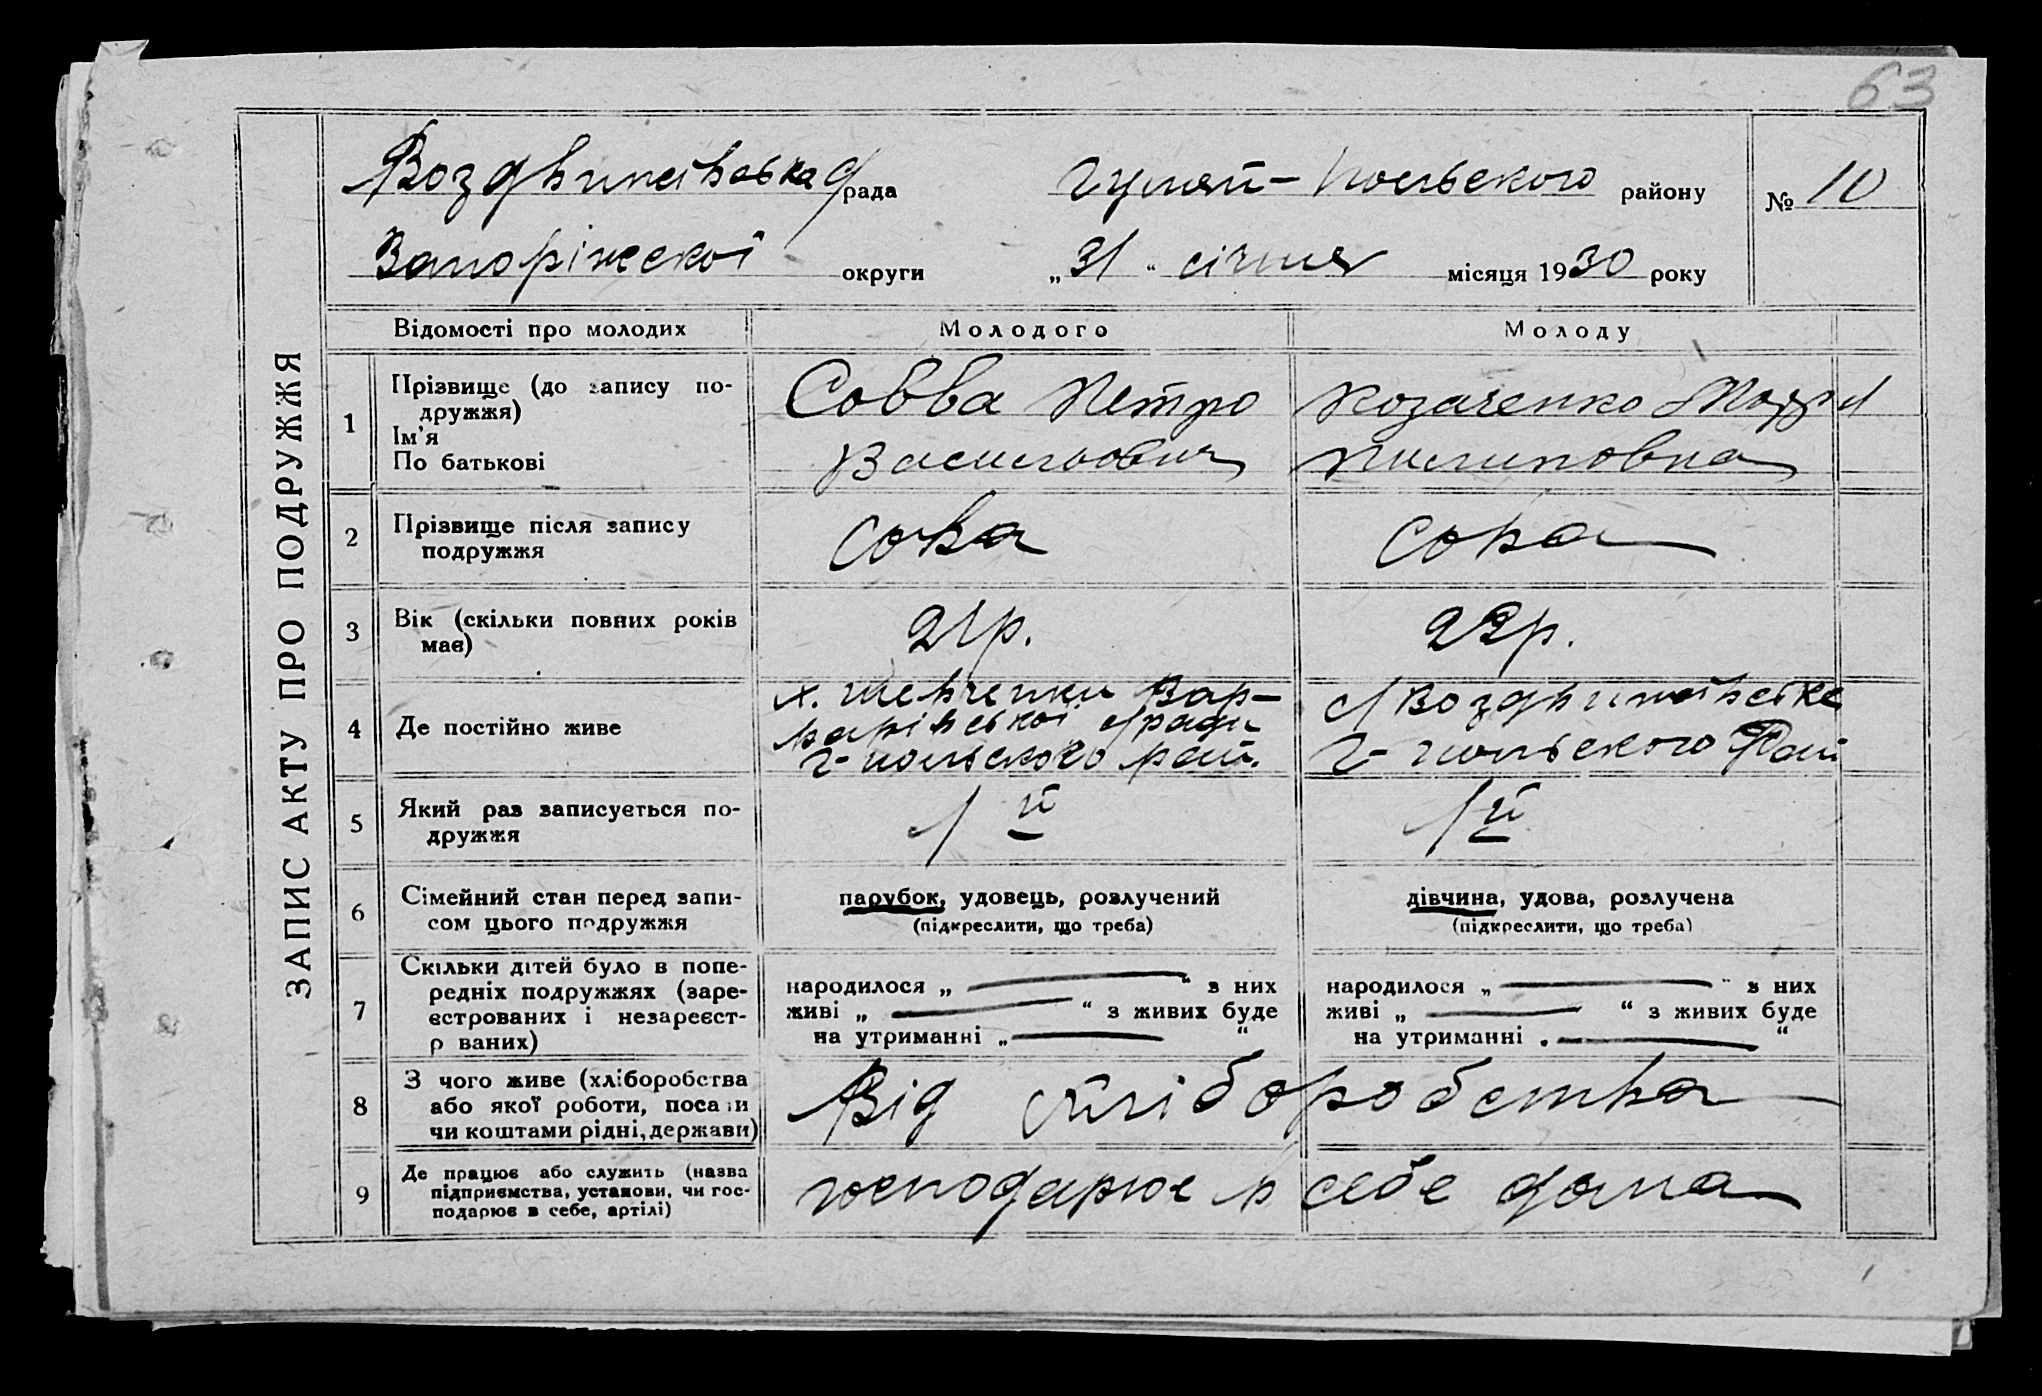 63
ЗАПИС АКТУ ПРО ПОДРУЖЖЯ
Воздвижевська рада Гуляй-Польського району № 10
Запоріжскої округи „31“ січня місяця 1930 року
Відомості про молодих Молодого Молоду
1 Прізвище (до запису по-
дружжя)
Ім’я
По батькові
Совва Петро
Васильович
Козаченко
Пилиповна
2 Прізвище після запису
подружжя
Сова
Сова
3 Вік (скільки повних років
має)
21р.
22р.
4 Де постійно живе
х. Шевченки Вар-
варівської с/ради
Г-польського рай.
с/Воздвижевське
Г-польського Рай
5 Який раз записується по-
дружжя
1й
1й
6 Сімейний стан перед запи-
сом цього подружжя
парубок, удовець, розлучений
(підкреслити, що треба)
дівчина, удова, розлучена
(підкреслити, що треба)
7 Скільки дітей було в попе-
редніх подружжях (заре-
єстрованих і незареєст-
р ваних)
народилося „ — “ з них
живі „ — “ з живих буде
на утриманні „ — “
народилося „ — “ з них
живі „ — “ з живих буде
на утриманні „ — “
8 З чого живе (хліборобства
або якої роботи, посади
чи коштами рідні, держави)
Від хліборобства
9 Де працює або служить (назва
підприємства, установи, чи гос-
подарює в себе, артілі)
господарює в себе дома